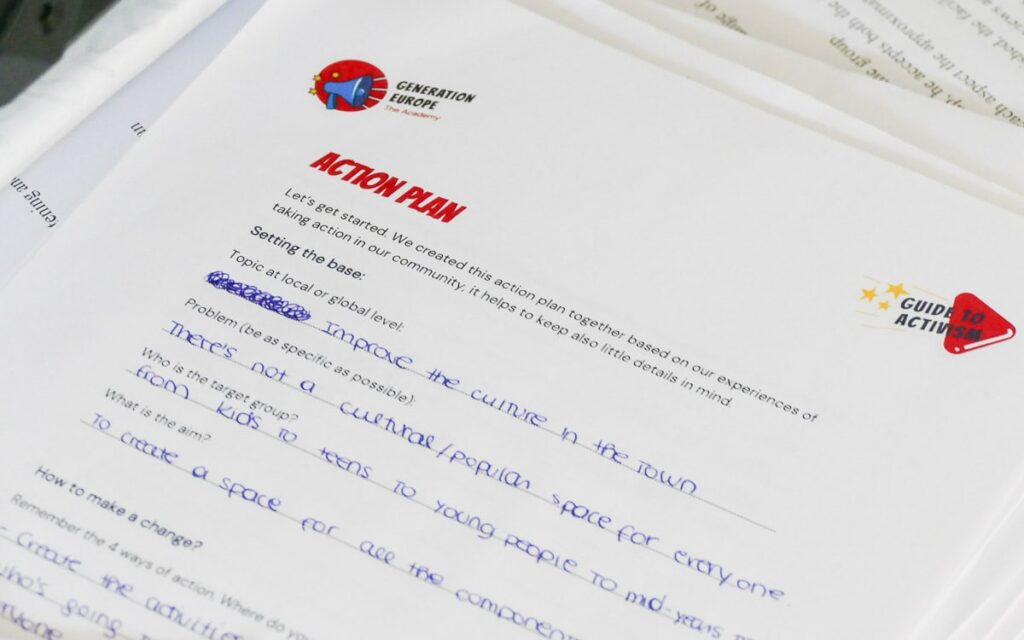 GENERATION
EUROPE
The Academy
ACTION PLAN
Let's get started. We created this action plan together based on our experiences of
taking action in our community, it helps to keep also little details in mind.
GUIDE TO
ACTIVISM
Setting the base:
Topic at local or global level:
Improve the culture in the town
Problem (be as specific as possible):
There's not a cultural/popular space for everyone.
Who is the target group?
from kids to teens to young people to mid-years
What is the aim?
To create a space for all the component
How to make a change?
Remember the 4 ways of action. Where do you
- Create the activities
who's going
everyone
each aspect the approxima
he accepts both the
group
age of
tening an